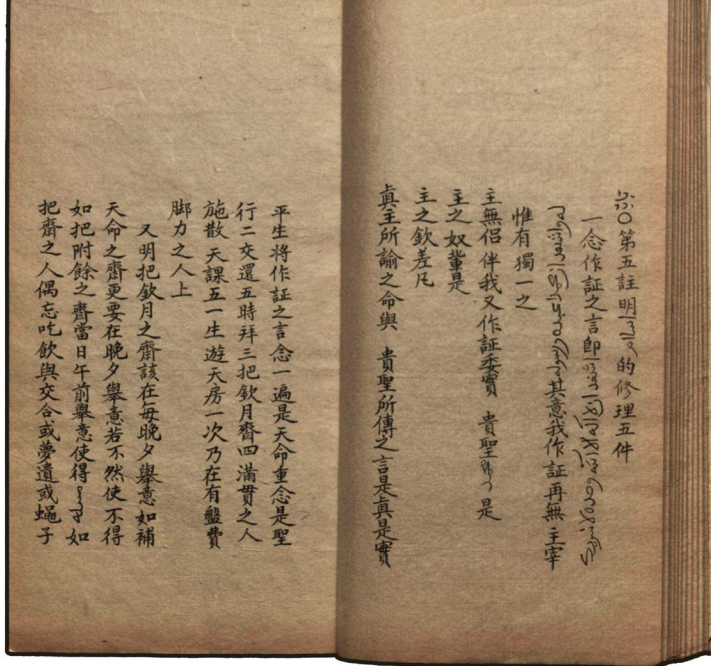 ○第五註明的修理五件
一念作証之言即
其意我作証再無 主宰
惟有獨一之
主無侶伴我又作証委實 貴聖 是
主之奴輩是
主之欽差凡
真主所諭之命與 貴聖所傳之言是真是實
平生將作証之言念一遍是天命重念是聖
行二交還五時拜三把欽月齋四滿貫之人
施散 天課五一生遊天房一次乃在有盤費
脚力之人上
又明把欽月之齋該在每晚夕舉意如補
天命之齋更要在晚夕舉意若不然使不得
如把附餘之齋當日午前舉意使得 如
把齋之人偶忘吃飲與交合或夢遺或蠅子